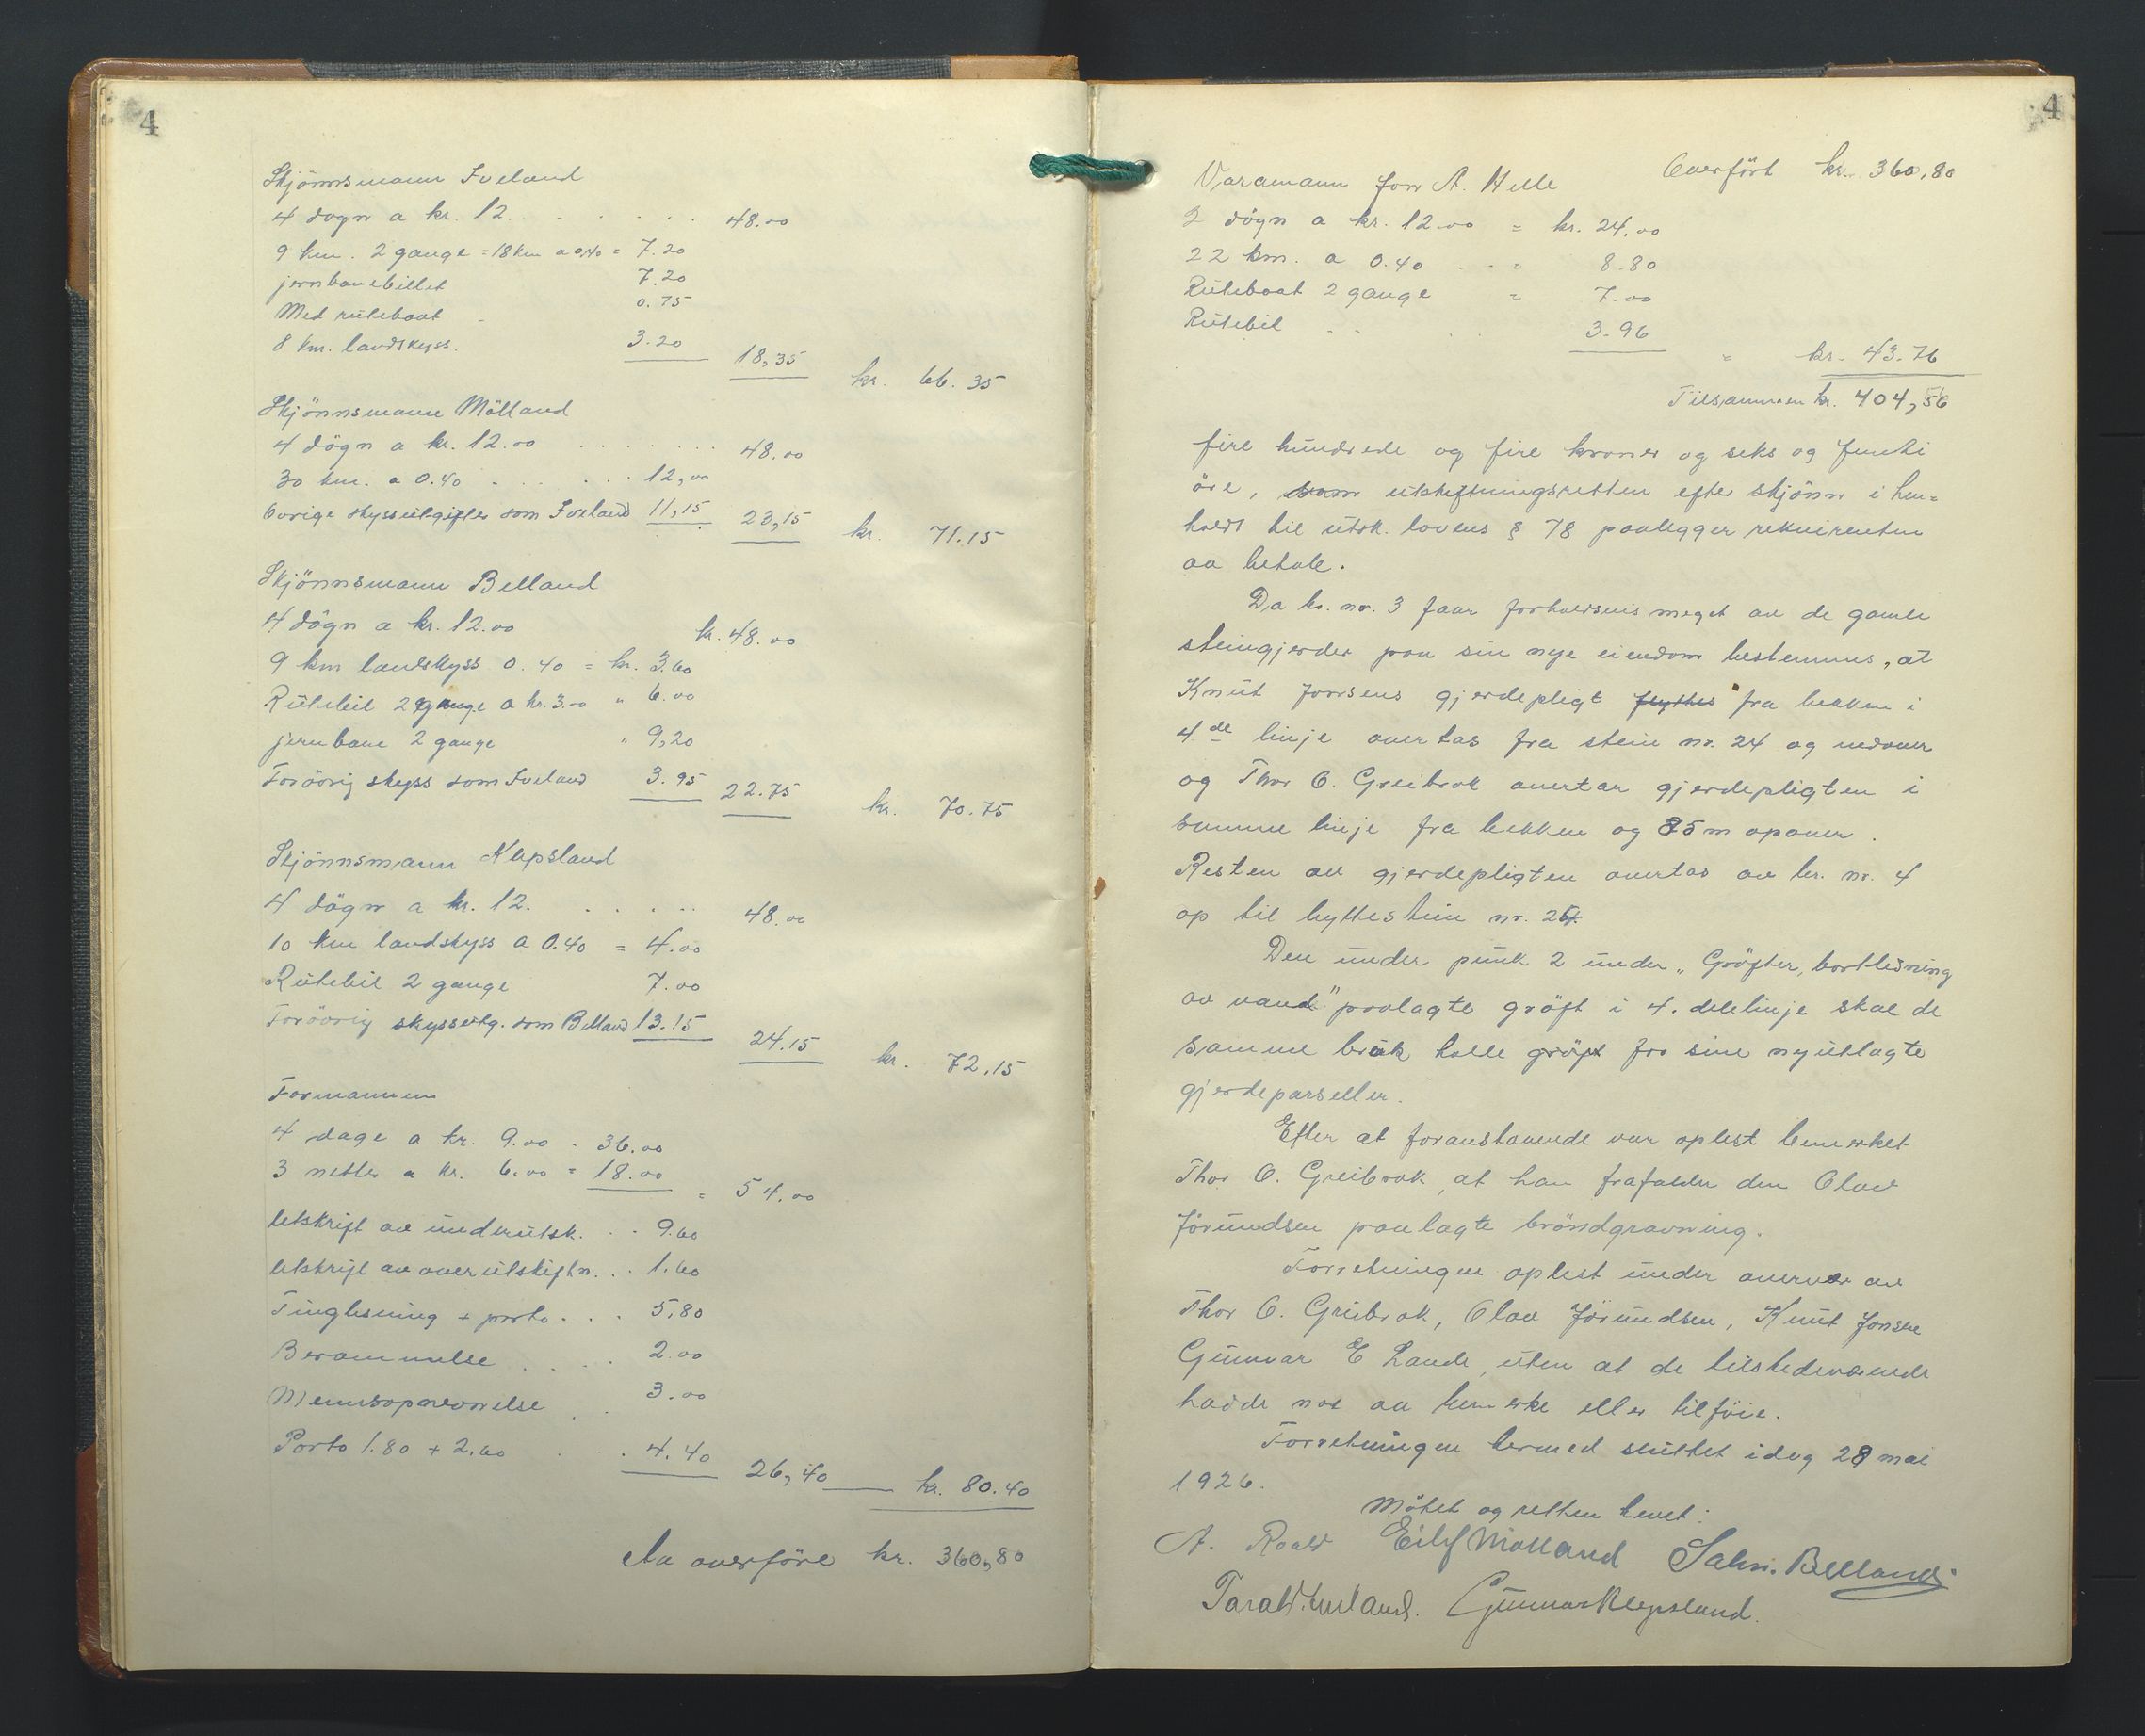 4
Skjönnsmann Iveland
4 dögn a kr. 12. . . . . . 48.00
9 km. 2 gange = 18 km a 0.40 = 7.20
jernbanebillet 7.20
Med rutebaat - 0.75
8 km. landskyss. 3.20 18,35 kr. 66.35
Skjönnsmann Mölland
4 dögn a kr. 12.00 . . . . . . . 48.00
30 km. a 0.40 . . . . . 12,00
Övrige skyssutgifter som Iveland 11,15 23,15 kr. 71.15
Skjönnsmann Belland
4 dögn a kr. 12.00 kr. 48.00
9 km landskyss 0.40 = kr. 3.60
Rutebil 2 gange a kr. 3.00 " 6.00
jernbane 2 gange " 9,20
Forövrig skyss som Iveland 3.95 22.75 kr. 70.75
Skjönnsmann Klepsland
4 dögn a kr. 12. . . . . . 48.00
10 km landskyss a 0.40 = 4.00
Rutebil 2 gange 7.00
Forövrig skyssutg. som Belland 13.15 24.15 kr. 72,15
Formannen
4 dage a kr. 9.00 . 36.00
3 netter a kr. 6.00 = 18.00 = 54.00
Utskrift av underutsk. . . 9.60
Utskrift av overutskiftn. . . 1.60
Tinglesning + porto . . . 5,80
Berammelse . . . . 2.00
Mennsopnevnelse . 3.00
Porto 1.80 + 2.60 . . . 4.40 26,40 kr. 80.40
Aa overföre kr. 360,80
4
Overfört kr. 360,80
Varamann Jon A. Helle
2 dögn a kr. 12.00 = kr. 24.00
22 km. a 0.40 . . = 8.80
Rutebaat 2 gange = 7.00
Rutebil . . . 3.96
" kr. 43.76
Tilsammen kr. 404,56
fire hundrede og fire kroner og seks og femti
öre, som utskiftningsretten efter skjönn i hen=
hold til utsk. lovens § 78 paalegger rekvirenten
aa betale.
Da br. nr. 3 faar forholdsvis meget av de gamle
steingjerder paa sin nye eiendom bestemmes, at
Knut Jonsens gjerdepligt flyttes fra bekken i
4de linje overtas fra stein nr. 24 og nedover
og Thor O. Greibrok overtar gjerdepligten i
samme linje fra bekken og 85 m opover.
Resten av gjerdepligten overtas av br. nr. 4
op til byttestein nr. 24.
Den under punk 2 under "Gröfter, bortledning
av vand" paalagte gröft i 4. delelinje skal de
samme bruk holle gröft for sine nyutlagte
gjerdeparseller.
Efter at foranstaaende var oplest bemerket
Thor O. Greibrok, at han frafalder den Olav
Jörundsen paalagte bröndgravning.
Forretningen oplest under overvær av
Thor O. Greibrok, Olav Jörundsen, Knut Jonsen
Gunnar E Lande, uten at de tilstedeværende
hadde noe aa bemerke eller tilföie.
Forretningen dermed sluttet idag 28 mai
1926.
Mötet og retten hevet:
A. Roald Eilif Mölland Salve. Belland
Tarald Iveland. Gunnar Klepsland.